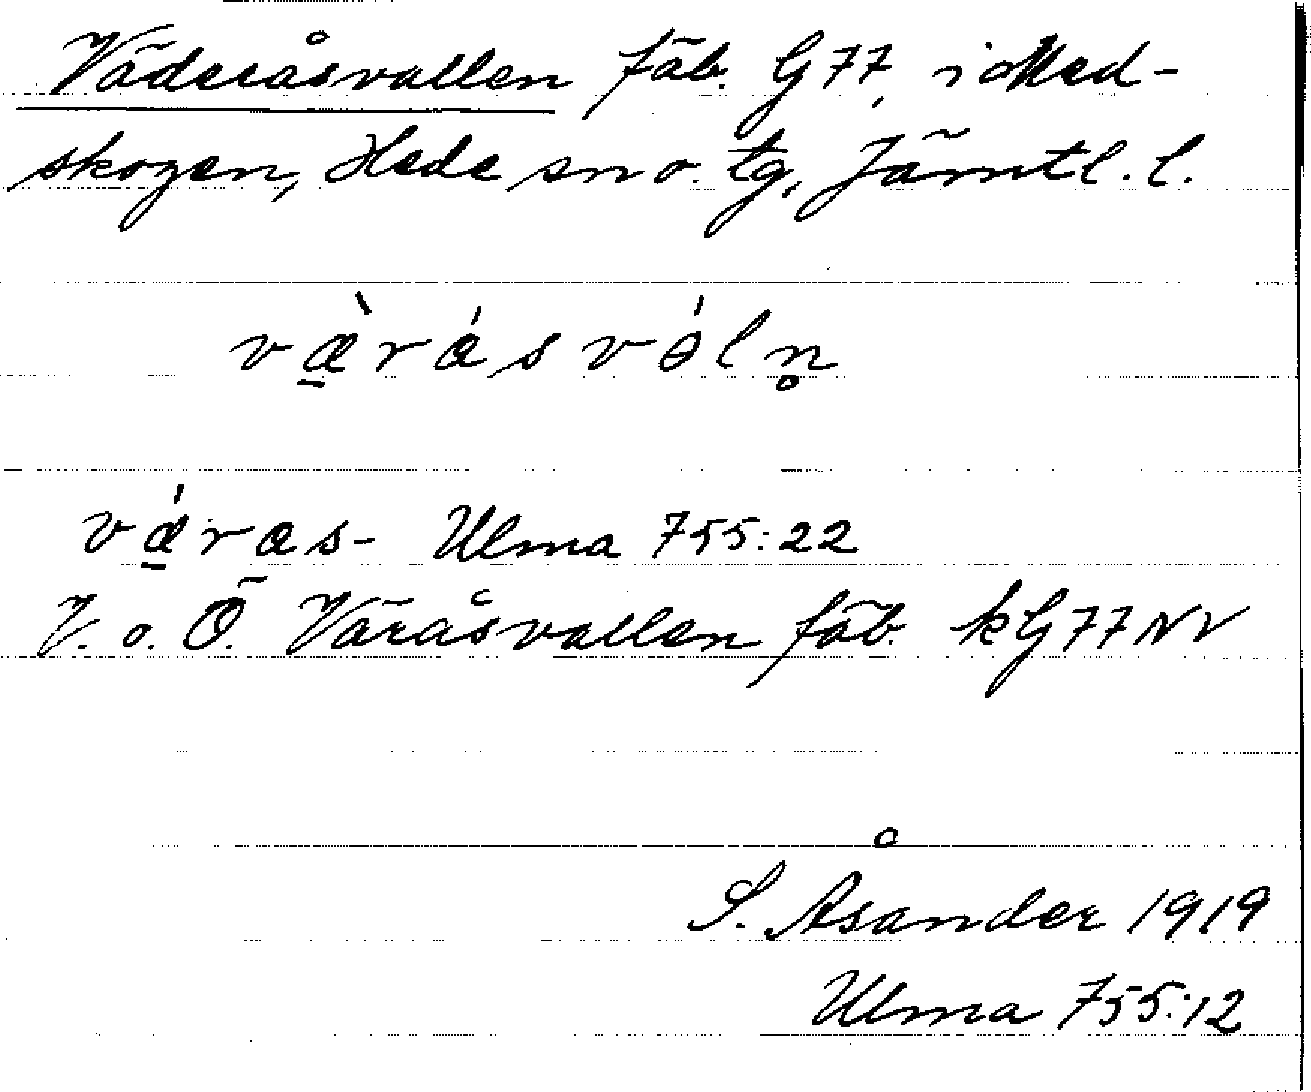 Väderåsvallen fäb. G 77, i Med-
skogen, Hede sn o. tg, Jämtl. l.
væ̲̀rásvóln̥
vǽ̲ras- Ulma 755:22
V. o. Ö. Väråsvallen fäb. kG77NV
S. Åsander 1919
Ulma 755:12